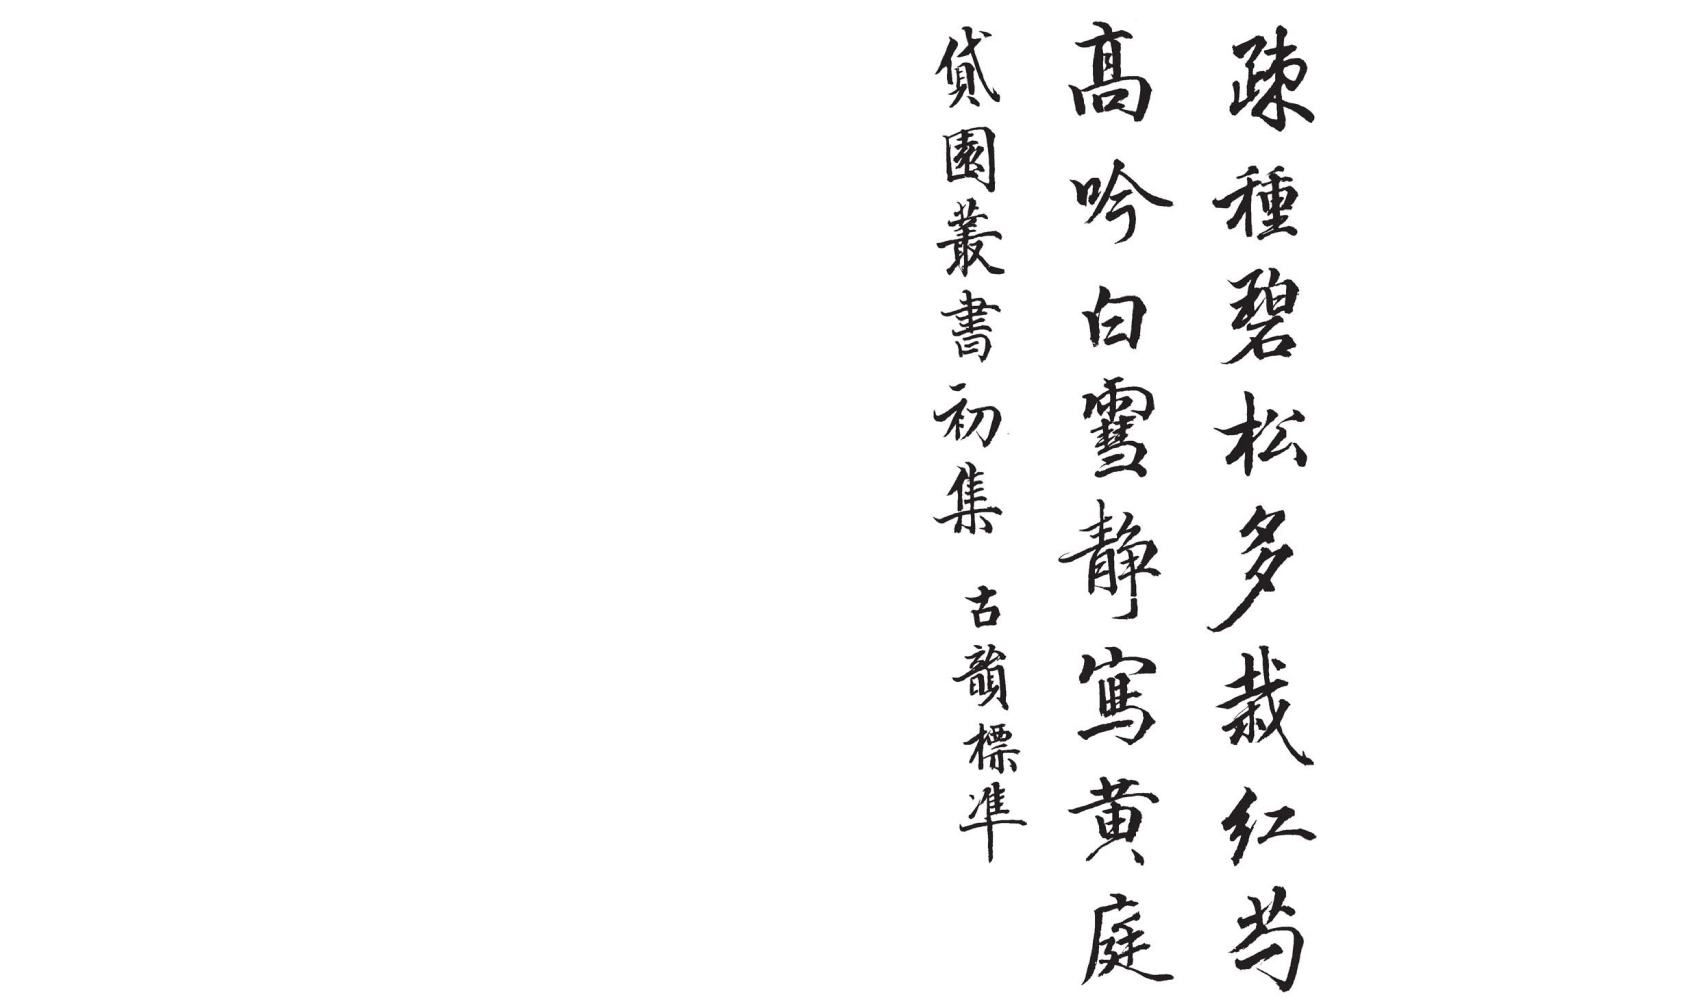 疎種碧松多栽红芍
高吟白雪静寫黄庭
貸園叢書初集 古韻標準